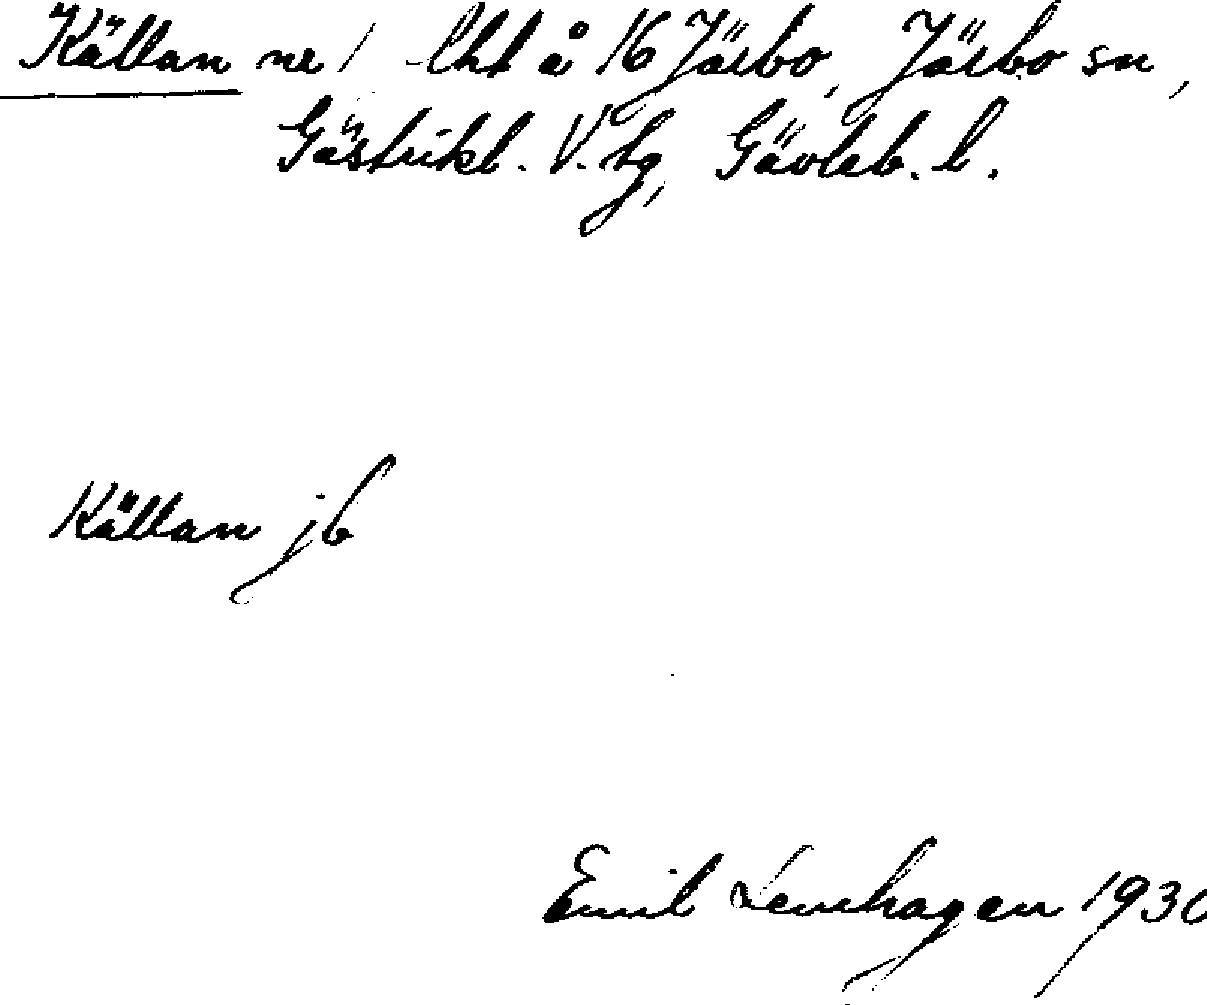 Källan nr 1 lht å 16 Järbo, Järbo sn,
Gästrikl. V. tg, Gävleb. l.
Källan jb
Emil Lenhagen 1930